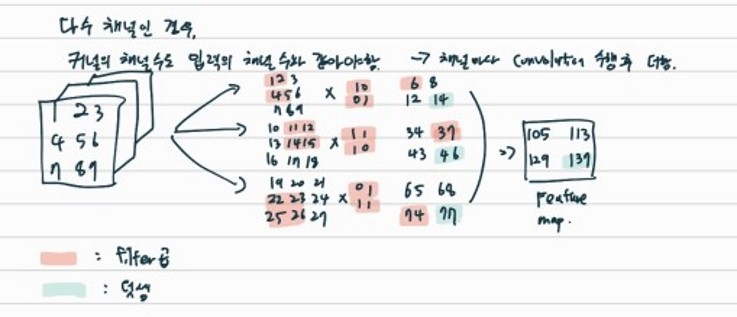 다수 채널인 경우,
커널의 채널수도 입력의 채널 수와 같아야함. → 채널마다 Convolution 수행 후 더함.
1 2 3
4 5 6
7 8 9
1 2 3
4 5 6
7 8 9
×
1 0
0 1
6 8
12 14
10 11 12
13 14 15
16 17 18
×
1 1
1 0
34 37
43 46
19 20 21
22 23 24
25 26 27
×
0 1
1 1
65 68
74 77
=>
105 113
129 137
Feature
map.
: filter곱
: 덧셈